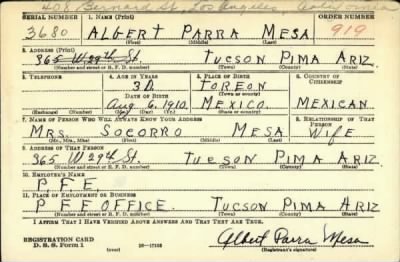 408 Bernard St., Los Angeles California
SERIAL NUMBER 1. NAME (Print) ORDER NUMBER
3680 ALBERT PARRA MESA 919
(First) (Middle) (Last)
2. ADDRESS (Print)
365 W 29th St. TUCSON PIMA ARIZ.
(Number and street or R. F. D. number) (Town) (County) (State)
3. TELEPHONE 4. AGE IN YEARS 5. PLACE OF BIRTH 6. COUNTRY OF CITIZENSHIP
30. TOREON
DATE OF BIRTH (Town or county)
Aug. 6, 1910. MEXICO. MEXICAN
(Exchange) (Number) (Mo.) (Day) (Yr.) (State or country)
7. NAME OF PERSON WHO WILL ALWAYS KNOW YOUR ADDRESS 8. RELATIONSHIP OF THAT PERSON
MRS. SOCORRO MESA WIFE
(Mr., Mrs., Miss) (First) (Middle) (Last)
9. ADDRESS OF THAT PERSON
365 W 29th St. TUCSON PIMA ARIZ
(Number and street or R. F. D. number) (Town) (County) (State)
10. EMPLOYER'S NAME
P.F.E.
11. PLACE OF EMPLOYMENT OR BUSINESS
P F E OFFICE. TUCSON PIMA ARIZ
(Number and street or R. F. D. number) (Town) (County) (State)
I AFFIRM THAT I HAVE VERIFIED ABOVE ANSWERS AND THAT THEY ARE TRUE.
REGISTRATION CARD
D. S. S. FORM 1 (over) Albert Parra Mesa
(Registrant's signature)